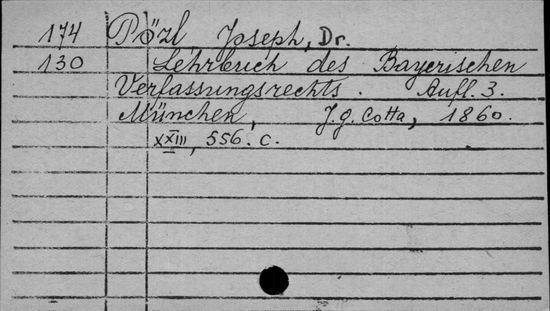 174 Pözl Joseph, Dr.
130 Lehrbuch des Bayerischen
Verfassungsrechts. Aufl. 3.
München, J. g. Cotta, 1860.
XXIII, 556. c.